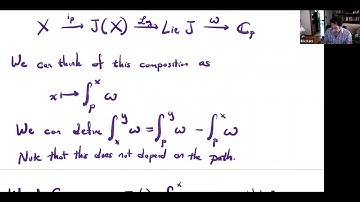 X →^{i_p} J(X) →^{Log} Lie J →^{ω} ℂ_p
We can think of this composition as
x ↦ ∫_p^x ω
We can define ∫_x^y ω = ∫_p^y ω − ∫_p^x ω
Note that this does not depend on the path.